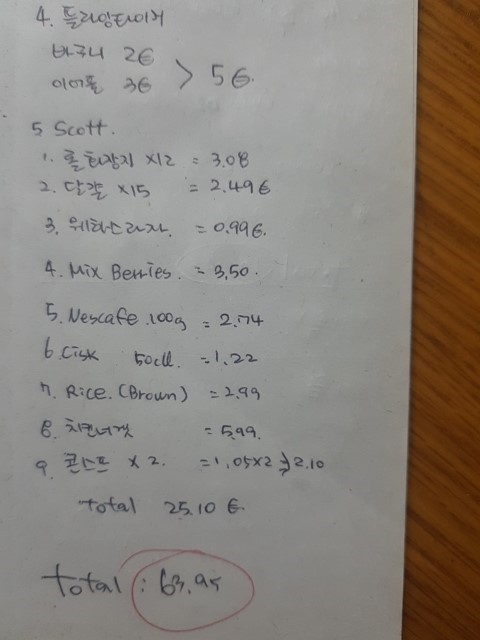 4. 플라잉타이거
바구니 2€
이어폰 3€ > 5€.
5 Scott.
1. 롤화장지 x12 = 3.08
2. 달걀 x15 = 2.49€
3. 웨하스과자. = 0.99€.
4. Mix Berries. = 3.50.
5. Nescafe .100g = 2.74
6. Cisk 50cll. = 1.22
7. Rice. (Brown) = 2.99
8. 치킨너겟 = 5.99.
9. 콘스프 x 2. = 1.05x2 → 2.10
total 25.10 €.
total : 63.95